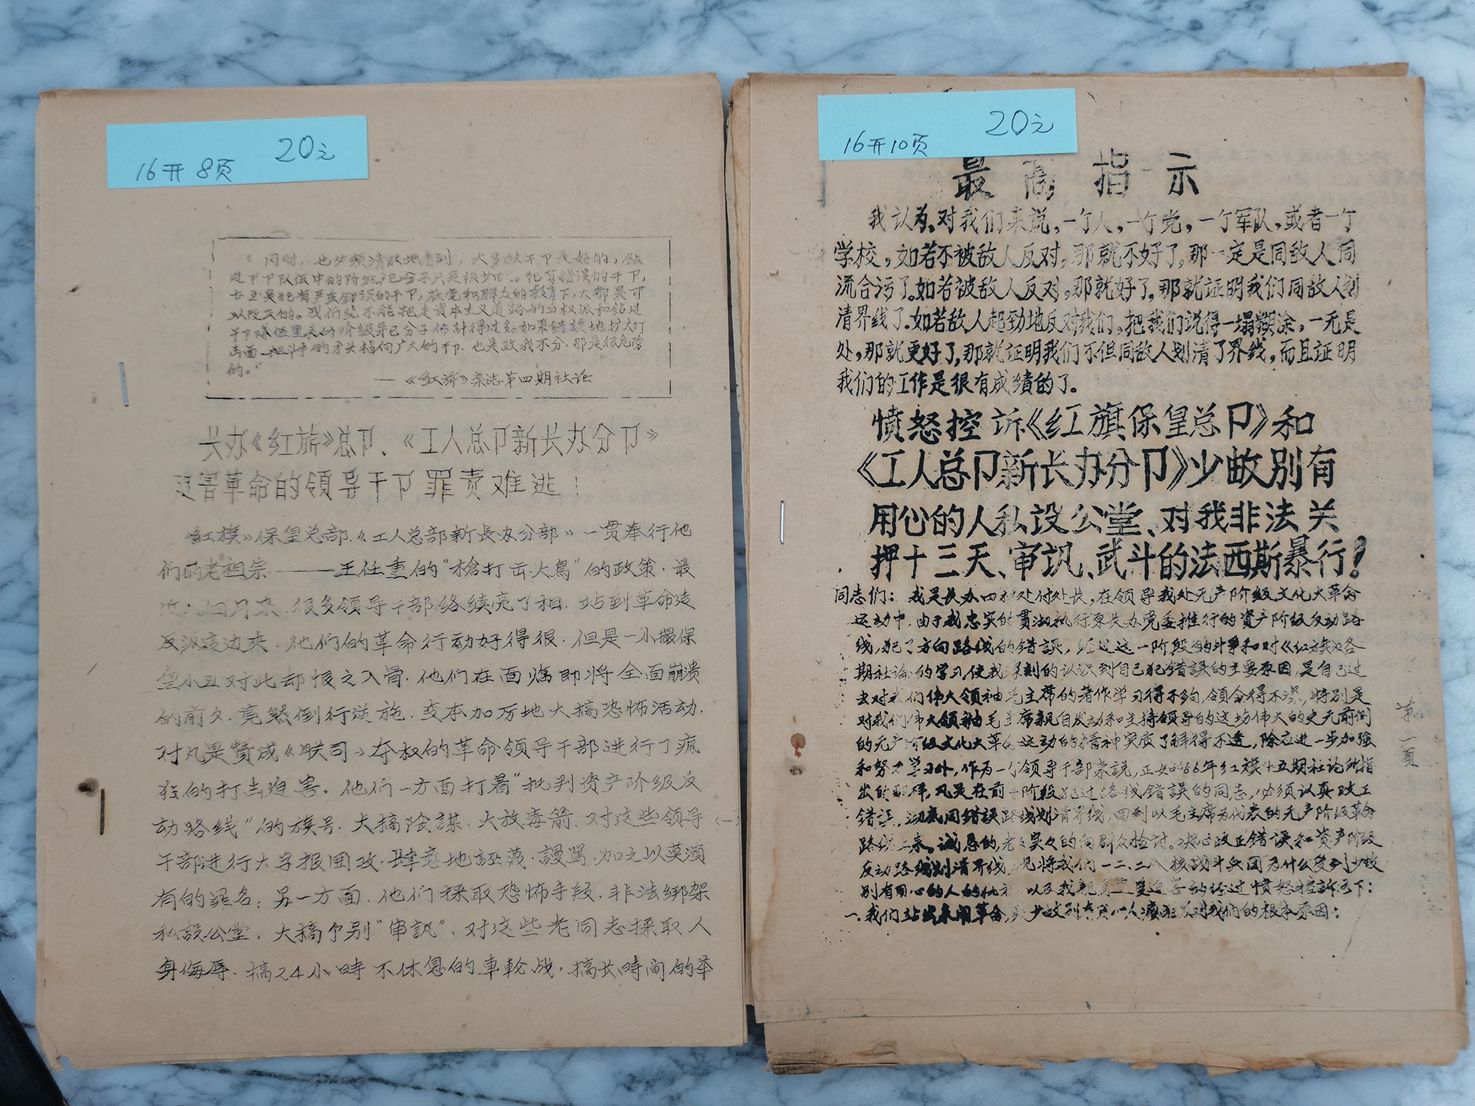 16开8页 20元
“同时，也必须清醒地看到，大多数干卩是好的，
以改正的。我们绝不能把走资本主义道路的当权派和钻进
干卩队伍里来的阶级异己分子估计得过多。如果错误地扩大打
击面，把斗争的矛头指向广大的干卩，也是敌我不分，那是很危险
的。”
—《红旂》杂志第四期社论
长办《红旂》总卩、《工人总卩新长办分卩》
迫害革命的领导干卩罪责难逃！
《红旗》保皇总部、《工人总部新長办分部》一贯奉行他
们的老祖宗——王任重的“槍打出头鳥”的政策．最
近 很多领导干部络续亮了相．站到革命造
反派這边来．他们的革命行动好得很．但是一小撮保
皇小丑对此却恨之入骨．他们在面临即将全面崩溃
的前夕．竟然倒行逆施．变本加厉地大搞恐怖活动．
对凡是赞成《联司》夺权的革命领导干部进行了疯
狂的打击迫害．他们一方面打着“批判资产阶级反
动路线”的旗号．大搞陰謀．大放毒箭．对这些领导
干部进行大字报围攻．肆意地誣蔑．謾骂．加之以莫须
有的罪名；另一方面．他们採取恐怖手段．非法绑架
私設公堂．大搞个别“审訊”．对这些老同志採取人
身侮辱．搞24小時不休息的車轮战．搞长時间的举
16开10页 20元
最高指示
我认为，对我们来说，一个人，一个党，一个军队，或者一个
学校，如若不被敌人反对，那就不好了，那一定是同敌人同
流合污了。如若被敌人反对，那就好了，那就证明我们同敌人划
清界线了。如若敌人起劲地反对我们，把我们说得一塌糊涂，一无是
处，那就更好了，那就证明我们不但同敌人划清了界线，而且证明
我们的工作是很有成绩的了。
愤怒控诉《红旗保皇总卩》和
《工人总卩新长办分卩》少数别有
用心的人私设公堂、对我非法关
押十三天、审讯、武斗的法西斯暴行！
同志们：我是长办 处付处长，在领导我处无产阶级文化大革命
运动中，由于我忠实的貫澈执行原长办党委推行的资产阶级反动路
线，犯了方向路线的错误，经过这一阶段的斗争和对《红旗》各
期社论的学习，使我深刻的认识到自己犯错误的主要原因，是自己过
去对我们伟大领袖毛主席的著作学习得不夠，领会得不深，特别是
对我们伟大领袖毛主席親自发动和主持领导的这場伟大的史无前例
的无产阶级文化大革命运动的精神实质了解得不透，除应进一步加強
和努力学习外，作为一个领导干部来説，正如66年红旗十五期社论所指
出的那样，凡是在前一阶段犯过路线错误的同志，必须认真改正
错误，澈底同错误路线划清界线，回到以毛主席为代表的无产阶级革命
路线上来。诚恳的老老实々的向群众检討。决心改正错误和资产阶级
反动路线划清界线，
一、我们站出来闹革命，
第一頁